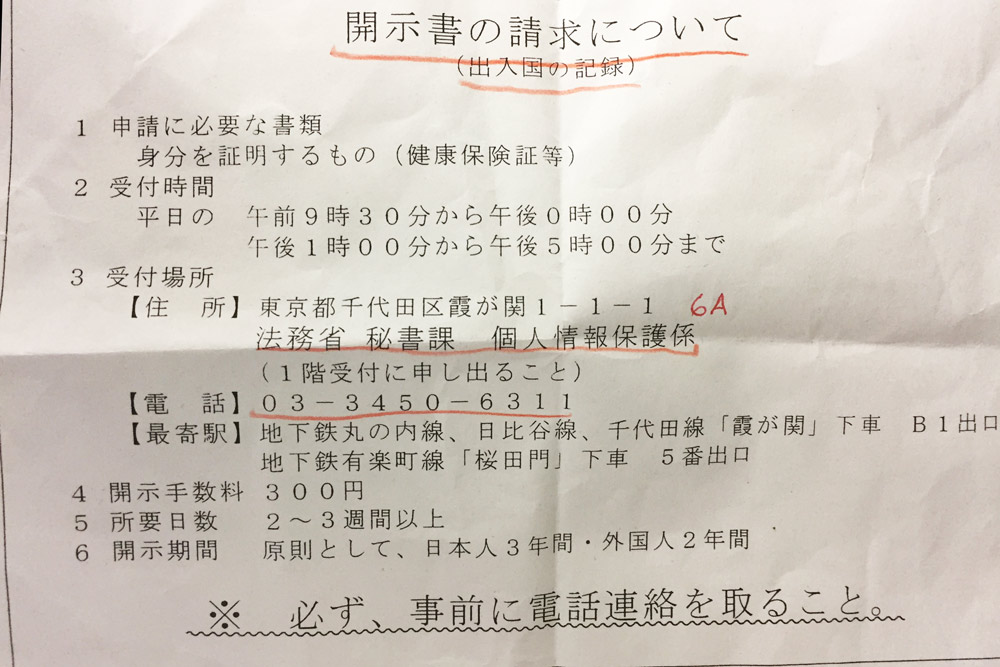 開示書の請求について
（出入国の記録）
1 申請に必要な書類
身分を証明するもの（健康保険証等）
2 受付時間
平日の 午前9時30分から午後0時00分
午後1時00分から午後5時00分まで
3 受付場所
【住 所】東京都千代田区霞が関1－1－1 6A
法務省 秘書課 個人情報保護係
（1階受付に申し出ること）
【電 話】03－3450－6311
【最寄駅】地下鉄丸の内線、日比谷線、千代田線「霞が関」下車 B1出口
地下鉄有楽町線「桜田門」下車 5番出口
4 開示手数料 300円
5 所要日数 2～3週間以上
6 開示期間 原則として、日本人3年間・外国人2年間
※ 必ず、事前に電話連絡を取ること。